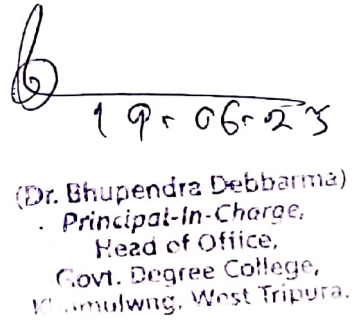 19.06.23
(Dr. Bhupendra Debbarma)
Principal-In-Charge,
Head of Office,
Govt. Degree College,
West Tripura.